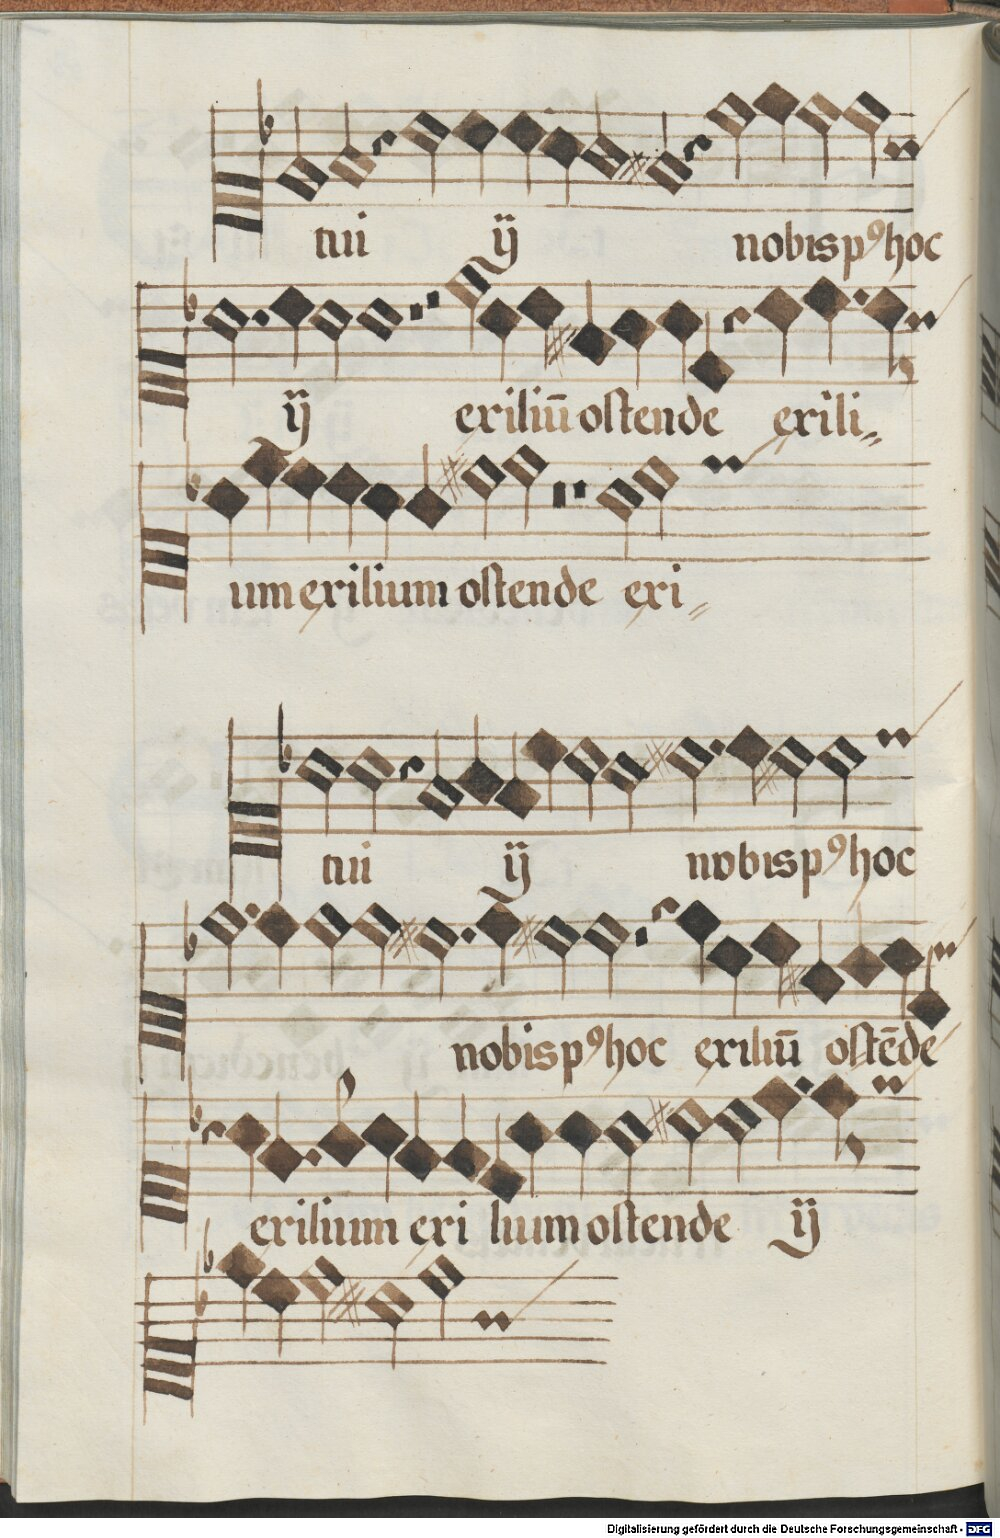 tui ij nobis pꝰ hoc
ij exiliū ostende exili
um exilium ostende exi
tui ij nobis pꝰ hoc
nobis pꝰ hoc exiliū ostēde
exilium exi lium ostende ij
Digitalisierung gefördert durch die Deutsche Forschungsgemeinschaft - DFG